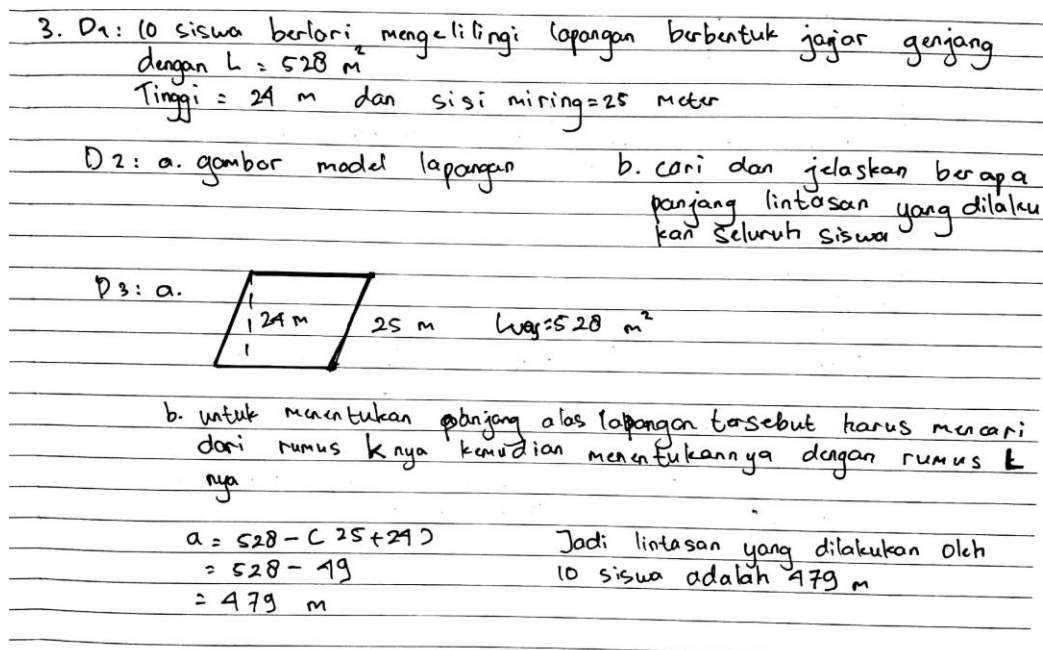 3. D1: 10 siswa berlari mengelilingi lapangan berbentuk jajar genjang
dengan L = 528 m²
Tinggi = 24 m dan sisi miring = 25 meter
D2: a. gambar model lapangan
b. cari dan jelaskan berapa
panjang lintasan yang dilaku
kan seluruh siswa
D3: a.
24 m
25 m
Luas = 528 m²
b. untuk menentukan panjang alas lapangan tersebut harus mencari
dari rumus K nya kemudian menentukannya dengan rumus L
nya
a = 528 - (25+24)
= 528 - 49
= 479 m
Jadi lintasan yang dilakukan oleh
10 siswa adalah 479 m